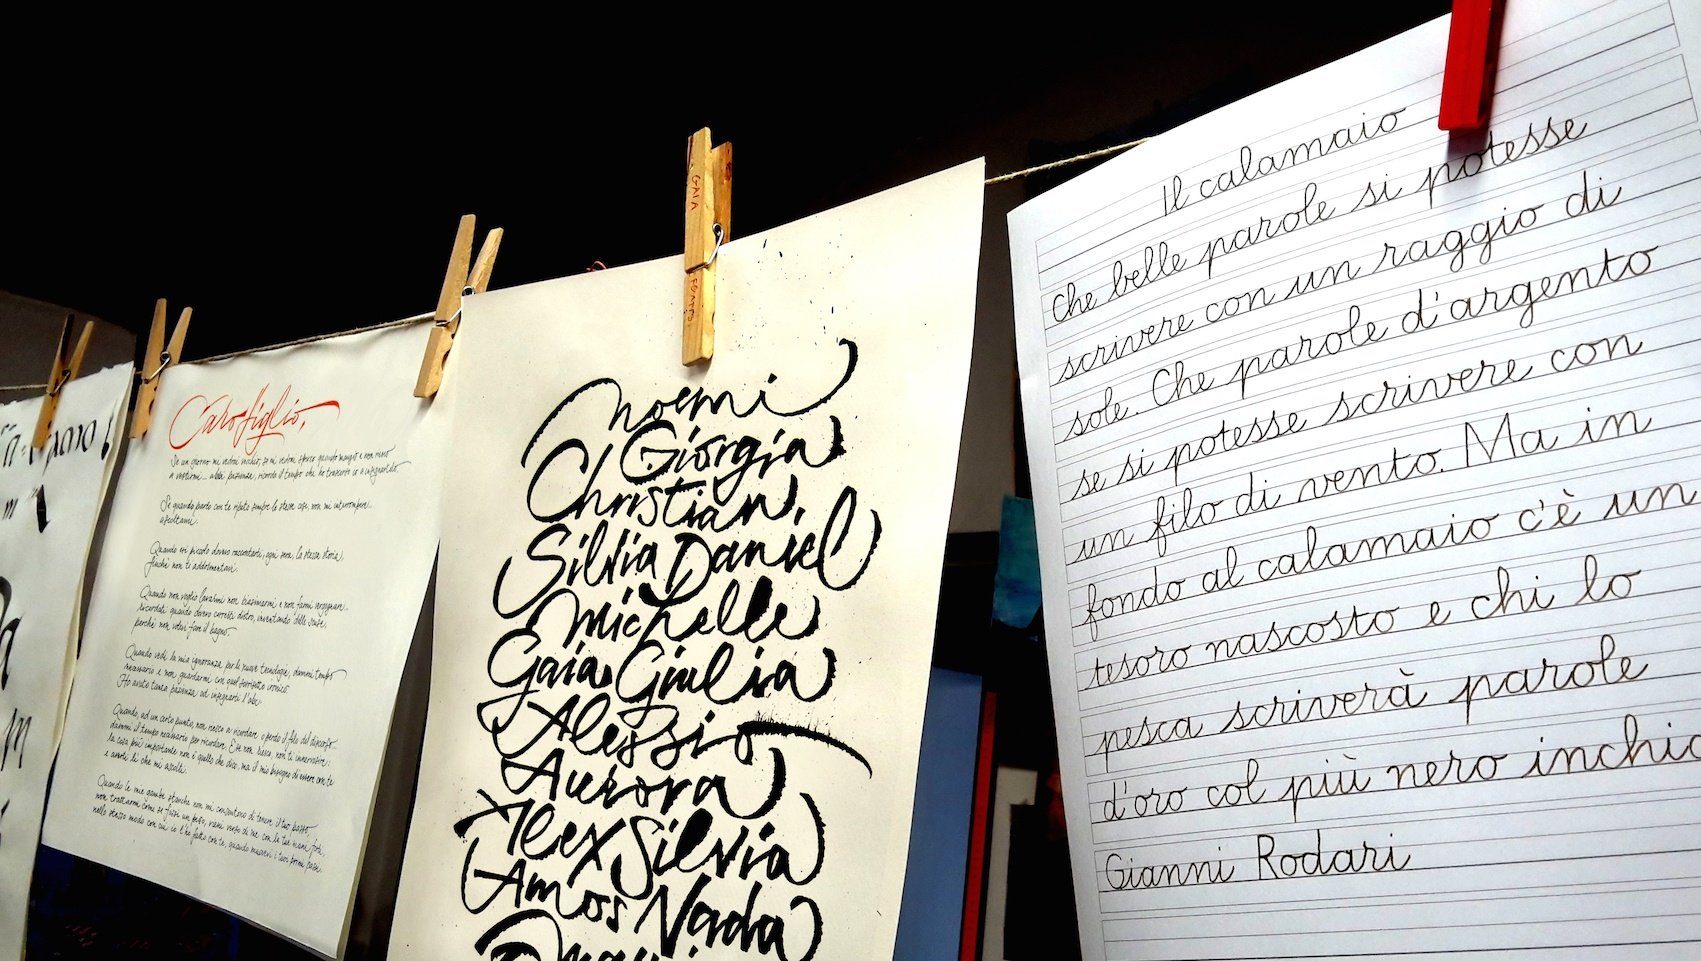 Caro figlio,
Se un giorno mi vedrai vecchio, se mi vedrai sporco quando mangio e non riesco
a vestirmi... abbi pazienza, ricorda il tempo che ho trascorso io a insegnartelo.
Se quando parlo con te ripeto sempre le stesse cose, non mi interrompere
ascoltami.
Quando eri piccolo dovevo raccontarti, ogni sera, la stessa storia,
finché non ti addormentavi.
Quando non voglio lavarmi non biasimarmi e non farmi vergognare.
Ricordati quando dovevo correrti dietro, inventando delle scuse
perché non volevi fare il bagno.
Quando vedi la mia ignoranza per le nuove tecnologie, dammi tempo
necessario e non guardarmi con quel sorrisetto ironico.
Ho avuto tanta pazienza ad insegnarti l'abc.
Quando, ad un certo punto, non riesco a ricordare o perdo il filo del discorso
dammi il tempo necessario per ricordare. E se non riesco, non ti innervosire:
la cosa più importante non è quello che dico, ma il mio bisogno di essere con te
e averti lì che mi ascolti.
Quando le mie gambe stanche non mi consentono di tenere il tuo passo,
non trattarmi come se fossi un peso, vieni verso di me con le tue mani forti,
nello stesso modo con cui io l'ho fatto con te, quando muovevi i tuoi primi passi.
GAIA
noemi
Giorgia
Christian,
Silvia Daniel
Michelle
Gaia Giulia
Alessio
Aurora
Alex Silvia
Amos Nerda
Il calamaio
Che belle parole si potesse
scrivere con un raggio di
sole. Che parole d'argento
se si potesse scrivere con
un filo di vento. Ma in
fondo al calamaio c'è un
tesoro nascosto e chi lo
pesca scriverà parole
d'oro col più nero inchio
Gianni Rodari